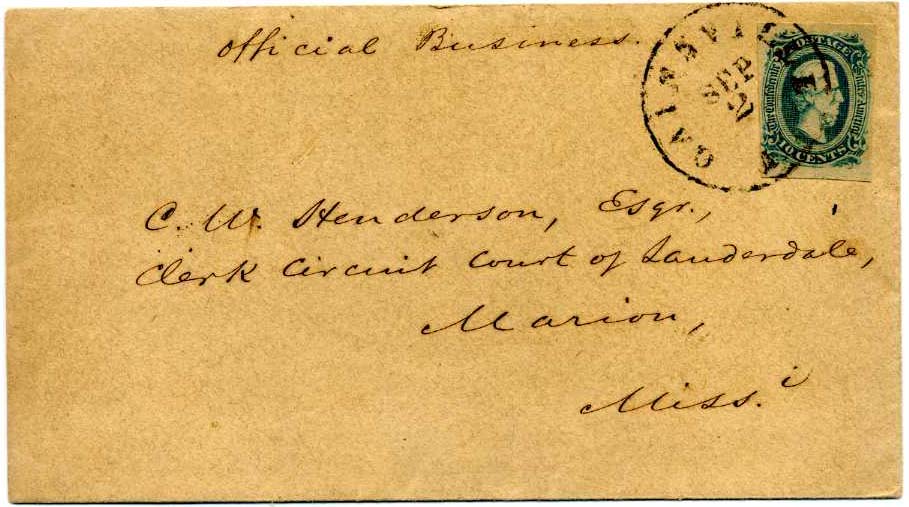 Official Business.
GAINESVILLE
SEP
2
POSTAGE
The Confederate States of America
10 CENTS
C. W. Henderson, Esqr.,
Clerk Circuit Court of Lauderdale,
Marion,
Miss.i